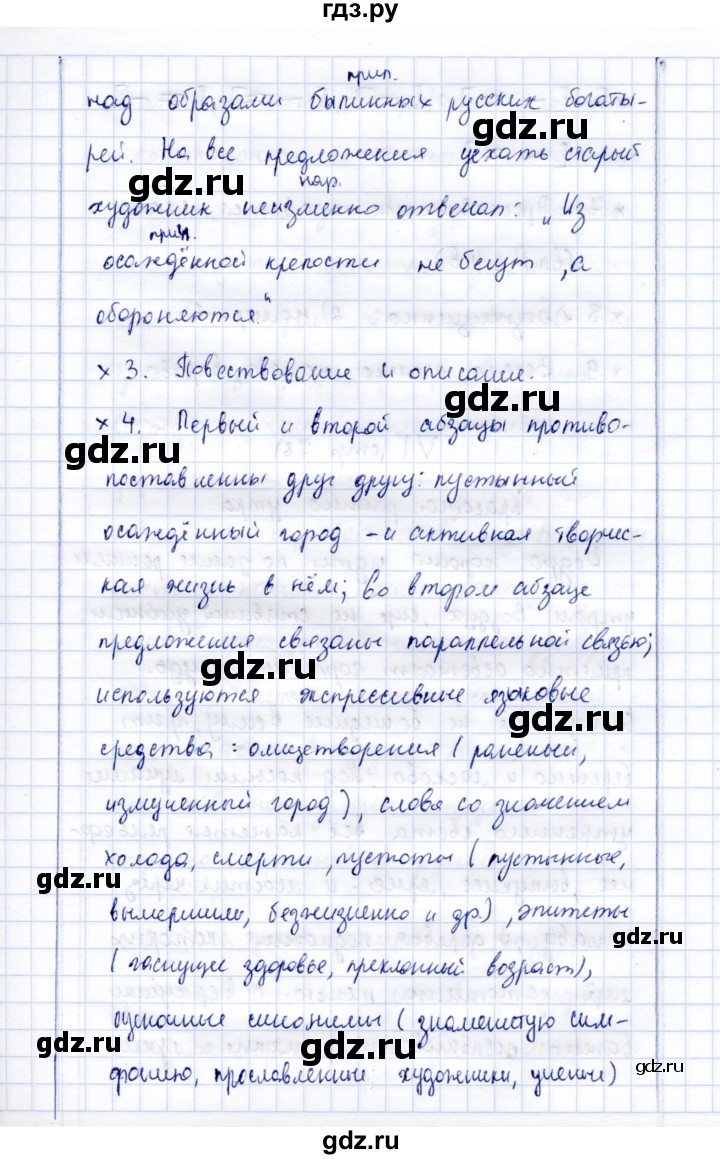 гдз.ру
прил.
над образами былинных русских богаты-
рей. На все предложения уехать старый
нар.
художник неизменно отвечал: „Из
прил.
осаждённой крепости не бегут, а
обороняются."
х 3. Повествование и описание.
х 4. Первый и второй абзацы противо-
поставленны друг другу: пустынный
осаждённый город – и активная творчес-
кая жизнь в нём; во втором абзаце
предложения связаны параллельной связью;
используются экспрессивные языковые
средства: олицетворения (раненый,
измученный город), слова со значением
холода, смерти, пустоты (пустынные,
вымершими, безжизненно и др.), эпитеты
(гаснущее здоровье, преклонный возраст),
синонимы (знаменистую сим-
фонию, прославленные художники, учёные)
gdz.ru
gdz.ru
gdz.ru
gdz.ru
gdz.ru
gdz.ru
gdz.ru
gdz.ru
gdz.ru
gdz.ru
gdz.ru
gdz.ru